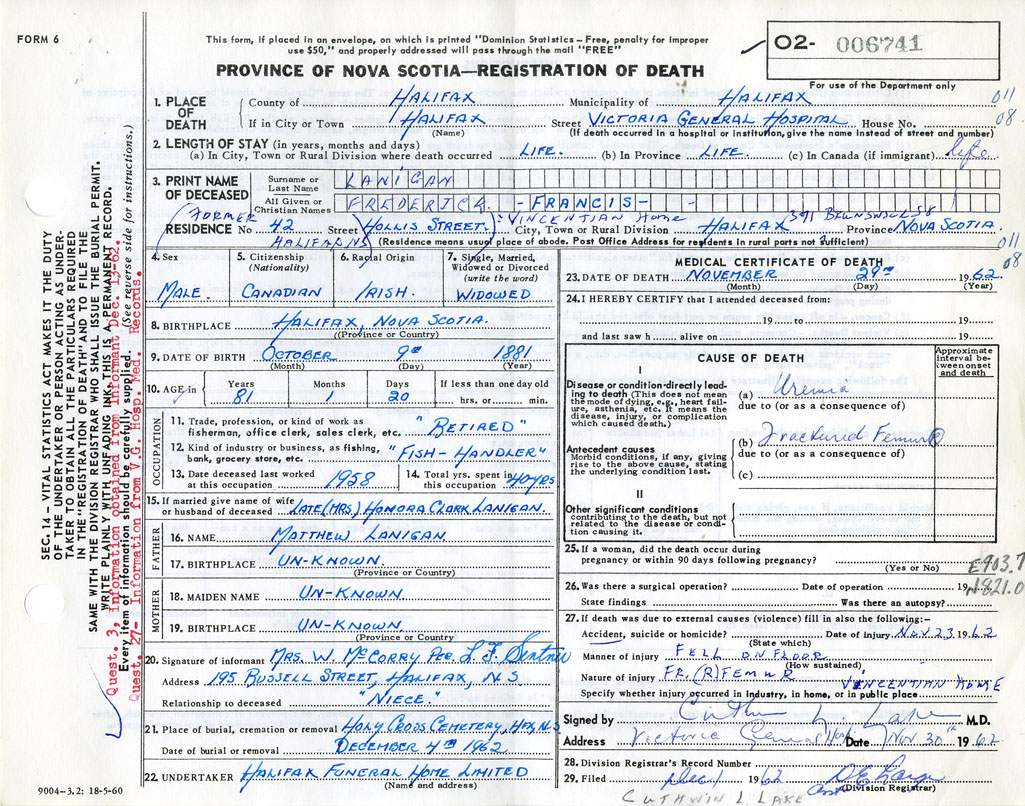 FORM 6
This form, if placed in an envelope, on which is printed "Dominion Statistics – Free, penalty for improper
use $50," and properly addressed will pass through the mail "FREE"
PROVINCE OF NOVA SCOTIA—REGISTRATION OF DEATH
02- 006741
For use of the Department only
1. PLACE OF DEATH
County of HALIFAX Municipality of HALIFAX 011
If in City or Town HALIFAX Street VICTORIA GENERAL HOSPITAL House No. 08
(Name) (If death occurred in a hospital or institution, give the name instead of street and number)
2. LENGTH OF STAY (in years, months and days)
(a) In City, Town or Rural Division where death occurred LIFE. (b) In Province LIFE. (c) In Canada (if immigrant) Life
3. PRINT NAME OF DECEASED
Surname or Last Name LANIGAN
All Given or Christian Names FREDERICK -FRANCIS- -
(FORMER VINCENTIAN HOME 391 BRUNSWICK ST
RESIDENCE No 42 Street HOLLIS STREET. City, Town or Rural Division HALIFAX Province NOVA SCOTIA.
HALIFAX NS) (Residence means usual place of abode. Post Office Address for residents in rural parts not sufficient) 011
08
4. Sex MALE.
5. Citizenship (Nationality) CANADIAN
6. Racial Origin IRISH.
7. Single, Married, Widowed or Divorced (write the word) WIDOWED
8. BIRTHPLACE HALIFAX, NOVA SCOTIA.
(Province or Country)
9. DATE OF BIRTH OCTOBER 9TH 1881
(Month) (Day) (Year)
10. AGE in Years 81 Months 1 Days 20 If less than one day old hrs. or min.
OCCUPATION
11. Trade, profession, or kind of work as
fisherman, office clerk, sales clerk, etc. "RETIRED"
12. Kind of industry or business, as fishing,
bank, grocery store, etc. "FISH-HANDLER"
13. Date deceased last worked
at this occupation 1958
14. Total yrs. spent in
this occupation 40 YRS
15. If married give name of wife
or husband of deceased LATE (MRS) HONORA CLARK LANIGAN.
FATHER
16. NAME MATTHEW LANIGAN.
17. BIRTHPLACE UN-KNOWN.
(Province or Country)
MOTHER
18. MAIDEN NAME UN-KNOWN
19. BIRTHPLACE UN-KNOWN.
(Province or Country)
20. Signature of informant MRS. W. MCCORRY PER L.F. Sentner
Address 195 RUSSELL STREET, HALIFAX, N.S
Relationship to deceased "NIECE".
21. Place of burial, cremation or removal HOLY CROSS CEMETERY, HFX, N.S
Date of burial or removal DECEMBER 4TH 1962
22. UNDERTAKER HALIFAX FUNERAL HOME LIMITED
(Name and address)
MEDICAL CERTIFICATE OF DEATH
23. DATE OF DEATH NOVEMBER 29TH 1962
(Month) (Day) (Year)
24. I HEREBY CERTIFY that I attended deceased from:
19 to 19
and last saw h alive on 19
CAUSE OF DEATH
Approximate interval between onset and death
I
Disease or condition directly leading to death (This does not mean
the mode of dying, e.g., heart failure, asthenia, etc. It means the
disease, injury, or complication
which caused death.)
(a) Uremia
due to (or as a consequence of)
(b) Fractured Femur (R)
due to (or as a consequence of)
(c)
Antecedent causes
Morbid conditions, if any, giving
rise to the above cause, stating
the underlying condition last.
II
Other significant conditions
contributing to the death, but not
related to the disease or condition causing it.
25. If a woman, did the death occur during
pregnancy or within 90 days following pregnancy?
(Yes or No) E903.7
26. Was there a surgical operation? Date of operation 19 N821.0
State findings Was there an autopsy?
27. If death was due to external causes (violence) fill in also the following:—
Accident, suicide or homicide? Date of injury NOV 23, 1962
(State which)
Manner of injury FELL ON FLOOR
(How sustained)
Nature of injury FR. (R) FEMUR VINCENTIAN HOME
Specify whether injury occurred in industry, in home, or in public place
Signed by Cuthwin L. Lake M.D.
Address Victoria General Hosp Date Nov 30th 1962
28. Division Registrar's Record Number
29. Filed Dec 1 1962
Asst (Division Registrar)
CUTHWIN L. LAKE
9004—3.2: 18-5-60
SEC. 14 - VITAL STATISTICS ACT MAKES IT THE DUTY
OF THE UNDERTAKER OR PERSON ACTING AS UNDERTAKER TO OBTAIN ALL THE PARTICULARS REQUIRED
IN THE "REGISTRATION OF DEATH" AND TO FILE THE
SAME WITH THE DIVISION REGISTRAR WHO SHALL ISSUE THE BURIAL PERMIT.
WRITE PLAINLY WITH UNFADING INK, THIS IS A PERMANENT RECORD.
Every item of information should be carefully supplied. (See reverse side for instructions.)
Quest. 3, information obtained from informant Dec. 13-62.
Quest. 27- Information from V.G. Hosp. Med. Records.